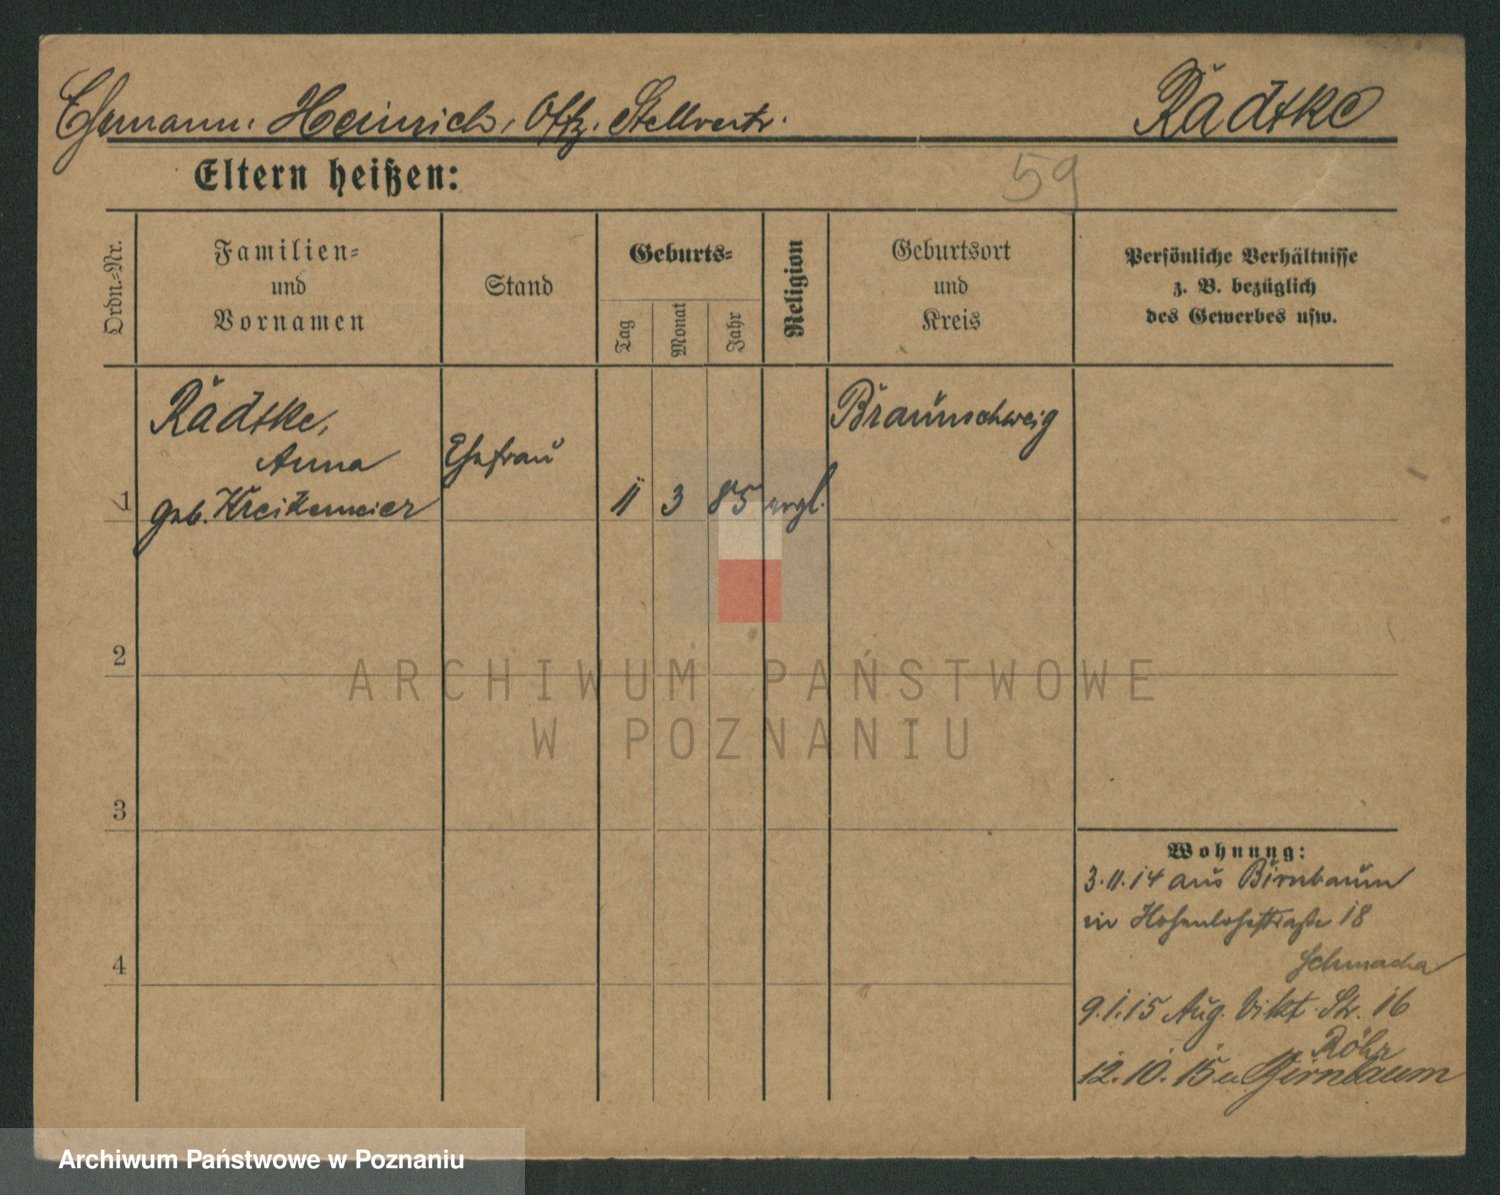 Ehemann. Heinrich, Offz. Stellvertr. Rädtke
Eltern heißen:
59
Ordn.=Nr.
Familien=
und
Vornamen
Stand
Geburts=
Tag
Monat
Jahr
Religion
Geburtsort
und
Kreis
Persönliche Verhältnisse
z. B. bezüglich
des Gewerbes usw.
Rädtke,
Anna
geb. Kreikemeier
Ehefrau
1
11 3 85 evgl.
Braunschweig
2
3
4
Wohnung:
3.11.14 aus Birnbaum
in Hohenlohestraße 18
9.1.15 Aug. Vikt. Str. 16
Röhr
12.10.15 n. Birnbaum
ARCHIWUM PAŃSTWOWE
W POZNANIU
Archiwum Państwowe w Poznaniu